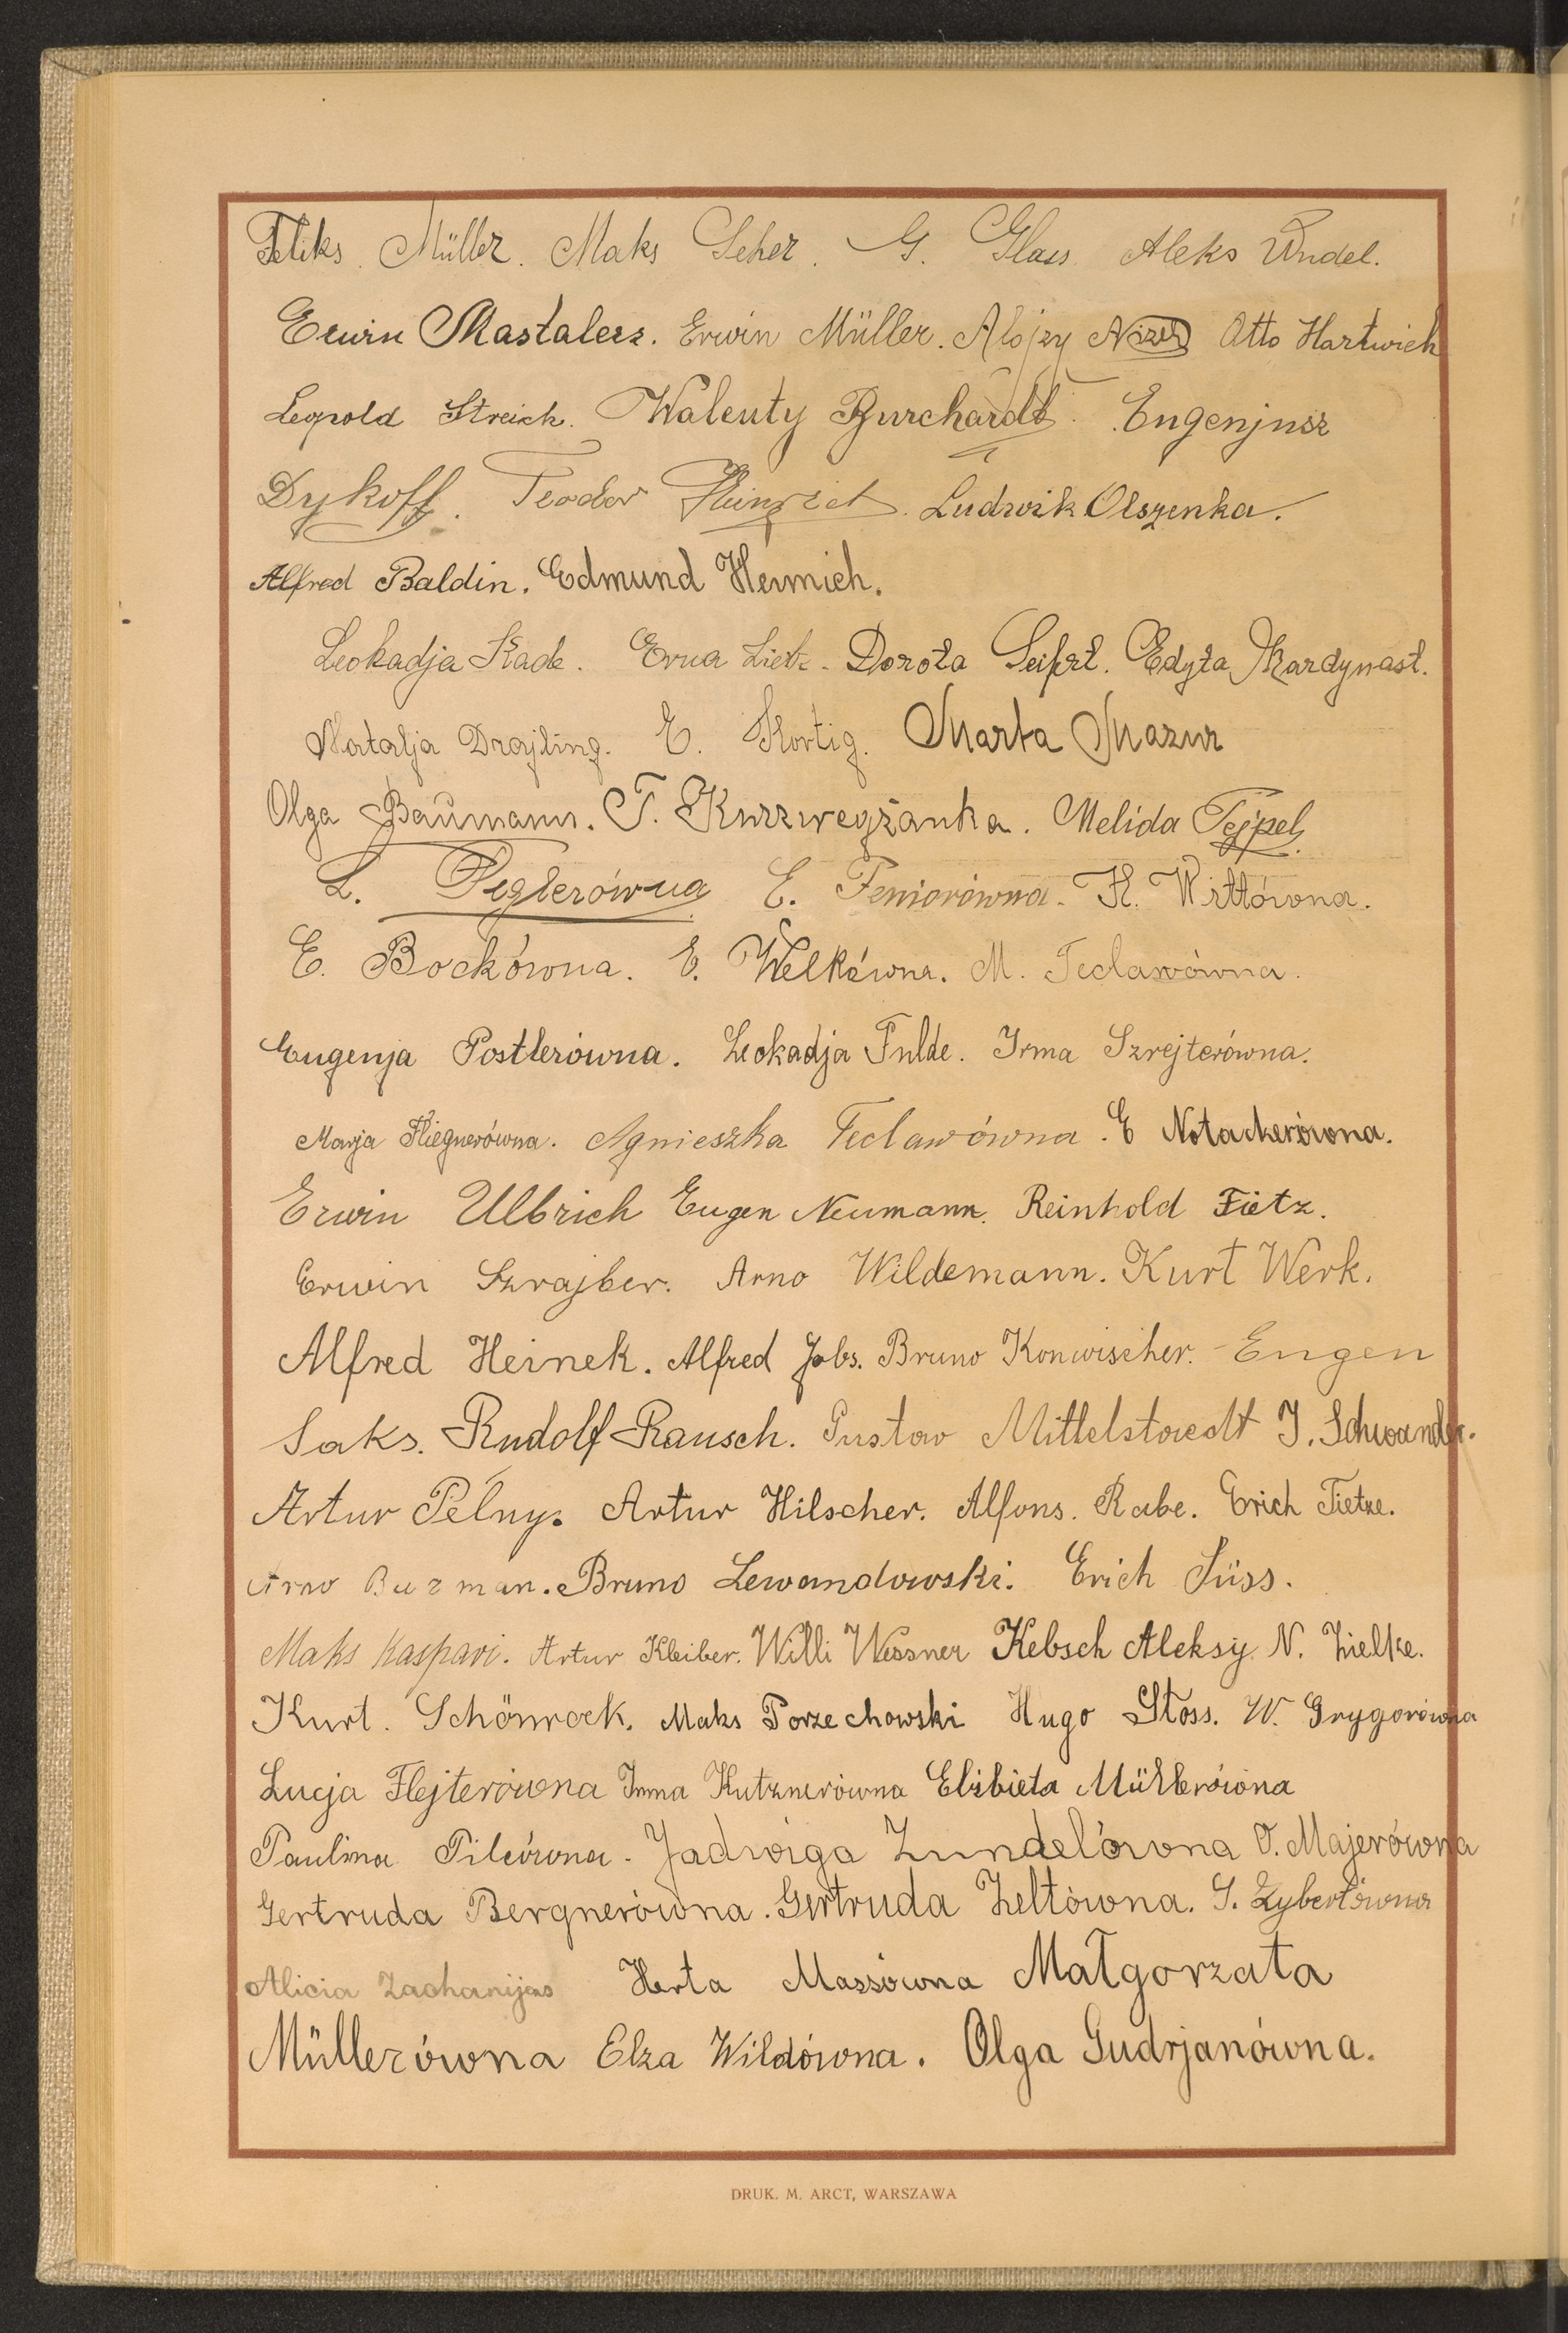 Feliks Müller. Maks Seher. G. Glass. Aleks Windel.
Erwin Mastalerz. Erwin Müller. Alojzy Nizer Otto Hartwich
Leopold Streich. Walenty Burchardt. Eugenjusz
Dykoff. Teodor Heinrich. Ludwik Olszenka.
Alfred Baldin. Edmund Hermich.
Leokadja Kade. Erna Lietz. Dorota Seifrt. Edyta Kardynast.
Natalja Drajling. E. Hortig. Marta Mazur
Olga Baumann. T. Kurzwegżanka. Melida Tejpel.
L. Peglerówna E. Feniorówna. H. Wittówna.
E. Bockówna. E. Welkówna. M. Teclawówna.
Eugenja Postlerówna. Leokadja Fulde. Irma Szrejterówna.
Marja Fliegnerówna. Agnieszka Teclawówna. E Notackerówna.
Erwin Ulbrich Eugen Neumann. Reinhold Fietz.
Erwin Szrajber. Arno Wildemann. Kurt Werk.
Alfred Heinek. Alfred Jobs. Bruno Konwischer. Eugen
Saks. Rudolf Rausch. Gustav Mittelstaedt J. Schwander.
Artur Pelny. Artur Hilscher. Alfons. Rabe. Erich Tietze.
Arno Buzman. Bruno Lewandowski. Erich Süss.
Maks Kaspari. Artur Kleiber. Willi Wessner Kebsch Aleksy. N. Zielke.
Kurt. Schönrock. Maks Porzechowski Hugo Stoss. W. Grygorówna
Lucja Flejterówna Irma Kutznerówna Elżbieta Müllerówna
Paulina Pilcówna. Jadwiga Zundelówna O. Majerówna
Gertruda Bergnerówna. Gertruda Zeltówna. S. Zybertówna
Alicia Zachanijas Herta Massówna Małgorzata
Müllerówna Elza Wildówna. Olga Gudrjanówna.
DRUK. M. ARCT, WARSZAWA